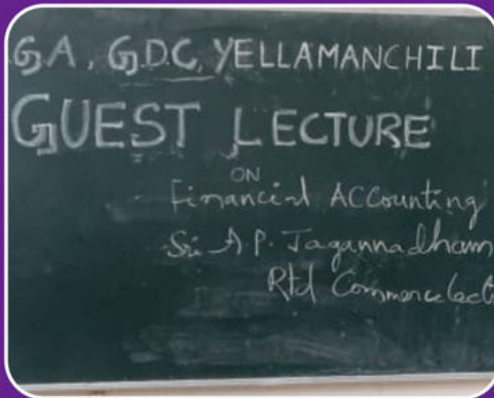 G.A, G.D.C, YELLAMANCHILI
GUEST LECTURE
ON
Financial Accounting
Sri A.P. Jagannadham
Rtd Commerce Lect